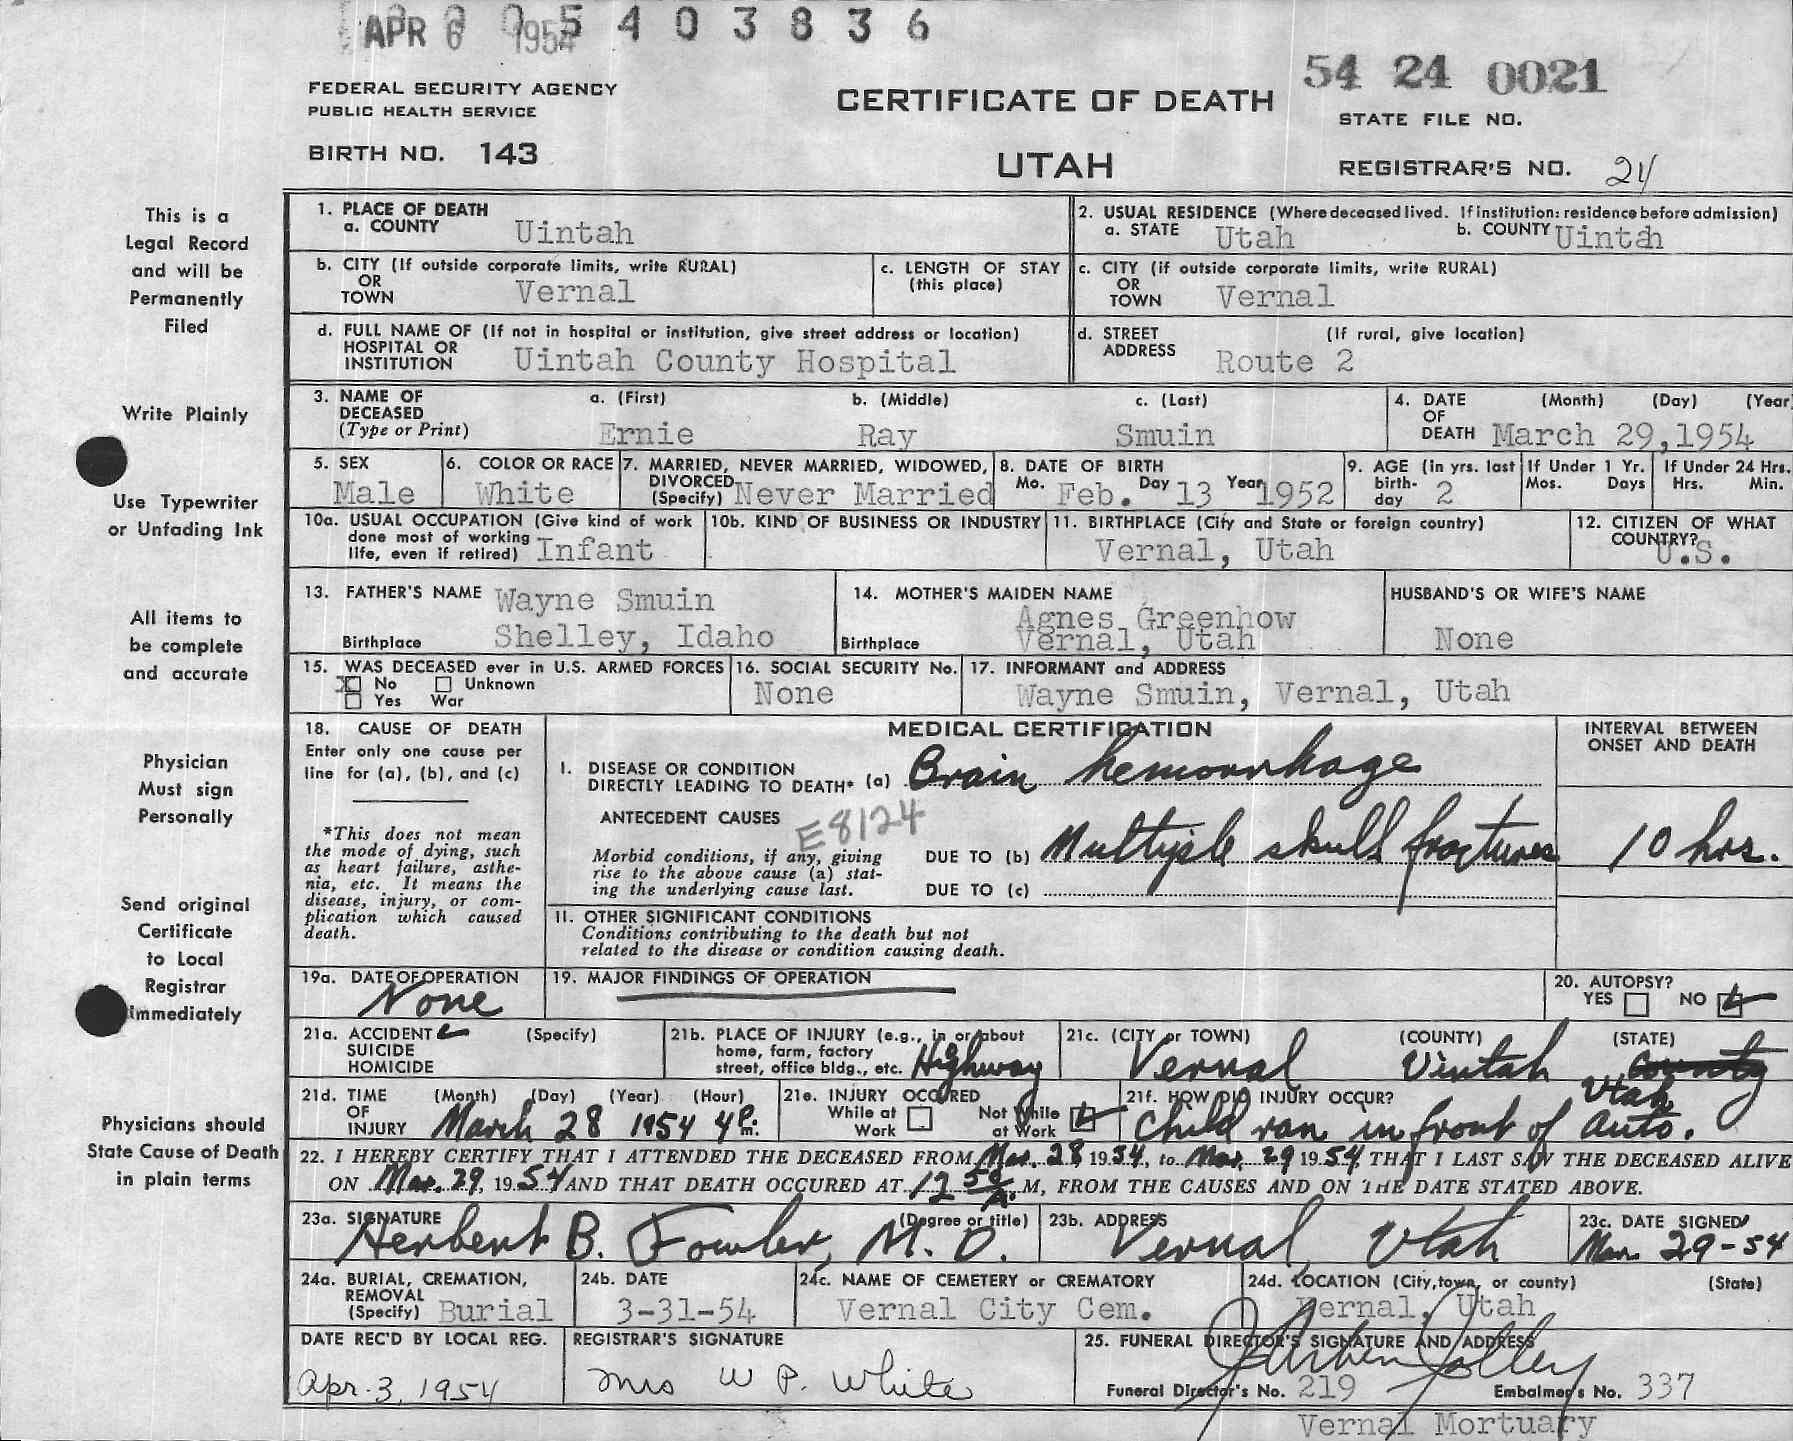 APR 6 1954 5403836
54 24 0021
FEDERAL SECURITY AGENCY
PUBLIC HEALTH SERVICE
CERTIFICATE OF DEATH
STATE FILE NO.
BIRTH NO. 143
UTAH
REGISTRAR'S NO. 24
This is a
Legal Record
and will be
Permanently
Filed
Write Plainly
Use Typewriter
or Unfading Ink
All items to
be complete
and accurate
Physician
Must sign
Personally
Send original
Certificate
to Local
Registrar
immediately
Physicians should
State Cause of Death
in plain terms
1. PLACE OF DEATH
a. COUNTY Uintah
2. USUAL RESIDENCE (Where deceased lived. If institution: residence before admission)
a. STATE Utah b. COUNTY Uintah
b. CITY (If outside corporate limits, write RURAL)
OR
TOWN Vernal
c. LENGTH OF STAY
(this place)
c. CITY (if outside corporate limits, write RURAL)
OR
TOWN Vernal
d. FULL NAME OF (If not in hospital or institution, give street address or location)
HOSPITAL OR
INSTITUTION Uintah County Hospital
d. STREET (If rural, give location)
ADDRESS Route 2
3. NAME OF a. (First) b. (Middle) c. (Last)
DECEASED
(Type or Print) Ernie Ray Smuin
4. DATE (Month) (Day) (Year
OF
DEATH March 29,1954
5. SEX
Male
6. COLOR OR RACE
White
7. MARRIED, NEVER MARRIED, WIDOWED,
DIVORCED
(Specify) Never Married
8. DATE OF BIRTH
Mo. Feb. Day 13 Year 1952
9. AGE (in yrs. last
birth-
day 2
If Under 1 Yr.
Mos. Days
If Under 24 Hrs.
Hrs. Min.
10a. USUAL OCCUPATION (Give kind of work
done most of working
life, even if retired) Infant
10b. KIND OF BUSINESS OR INDUSTRY
11. BIRTHPLACE (City and State or foreign country)
Vernal, Utah
12. CITIZEN OF WHAT
COUNTRY?
U.S.
13. FATHER'S NAME Wayne Smuin
Birthplace Shelley, Idaho
14. MOTHER'S MAIDEN NAME
Agnes Greenhow
Birthplace Vernal, Utah
HUSBAND'S OR WIFE'S NAME
None
15. WAS DECEASED ever in U.S. ARMED FORCES
X No Unknown
Yes War
16. SOCIAL SECURITY No.
None
17. INFORMANT and ADDRESS
Wayne Smuin, Vernal, Utah
18. CAUSE OF DEATH
Enter only one cause per
line for (a), (b), and (c)
*This does not mean
the mode of dying, such
as heart failure, asthe-
nia, etc. It means the
disease, injury, or com-
plication which caused
death.
MEDICAL CERTIFICATION
INTERVAL BETWEEN
ONSET AND DEATH
I. DISEASE OR CONDITION
DIRECTLY LEADING TO DEATH* (a) Brain hemorrhage
ANTECEDENT CAUSES E8124
Morbid conditions, if any, giving
rise to the above cause (a) stat-
ing the underlying cause last.
DUE TO (b) Multiple skull fractures 10 hrs.
DUE TO (c)
II. OTHER SIGNIFICANT CONDITIONS
Conditions contributing to the death but not
related to the disease or condition causing death.
19a. DATE OF OPERATION
None
19. MAJOR FINDINGS OF OPERATION
20. AUTOPSY?
YES NO
21a. ACCIDENT (Specify)
SUICIDE
HOMICIDE
21b. PLACE OF INJURY (e.g., in or about
home, farm, factory
street, office bldg., etc. Highway
21c. (CITY or TOWN) (COUNTY) (STATE)
Vernal Uintah County
Utah
21d. TIME (Month) (Day) (Year) (Hour)
OF
INJURY March 28 1954 4 P. m.
21e. INJURY OCCURED
While at Work Not While at Work
21f. HOW DID INJURY OCCUR?
Child ran in front of Auto.
22. I HEREBY CERTIFY THAT I ATTENDED THE DECEASED FROM Mar. 28, 1954, to Mar. 29 1954, THAT I LAST SAW THE DECEASED ALIVE
ON Mar. 29, 1954 AND THAT DEATH OCCURED AT 12 50 A. M, FROM THE CAUSES AND ON THE DATE STATED ABOVE.
23a. SIGNATURE (Degree or title)
Herbert B. Fowler, M.D.
23b. ADDRESS
Vernal, Utah
23c. DATE SIGNED
Mar. 29-54
24a. BURIAL, CREMATION,
REMOVAL
(Specify) Burial
24b. DATE
3-31-54
24c. NAME OF CEMETERY or CREMATORY
Vernal City Cem.
24d. LOCATION (City, town, or county) (State)
Vernal, Utah
DATE REC'D BY LOCAL REG.
Apr. 3, 1954
REGISTRAR'S SIGNATURE
Mrs W P. White
25. FUNERAL DIRECTOR'S SIGNATURE AND ADDRESS
Funeral Director's No. 219 Embalmer's No. 337
Vernal Mortuary